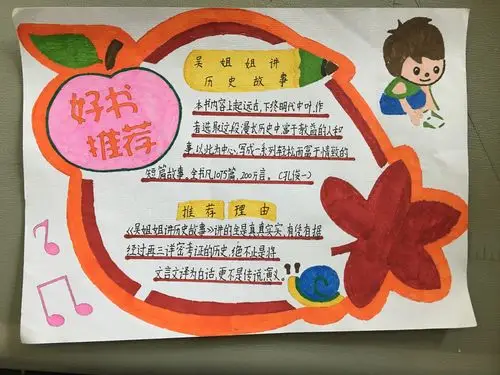 好书
推荐
吴姐姐讲
历史故事
本书内容上起远古,下终明代中叶,作
者选取这段漫长历史中富于教益的人和
事,以此为中心,写成一系列轻松而富于情致的
短篇故事。全书凡1075篇,200万言。
推荐 理由
《吴姐姐讲历史故事》讲的全是真真实实,有结有据
经过再三详密考证的历史,绝不止是将
文言文译为白话,更不是传说演义。